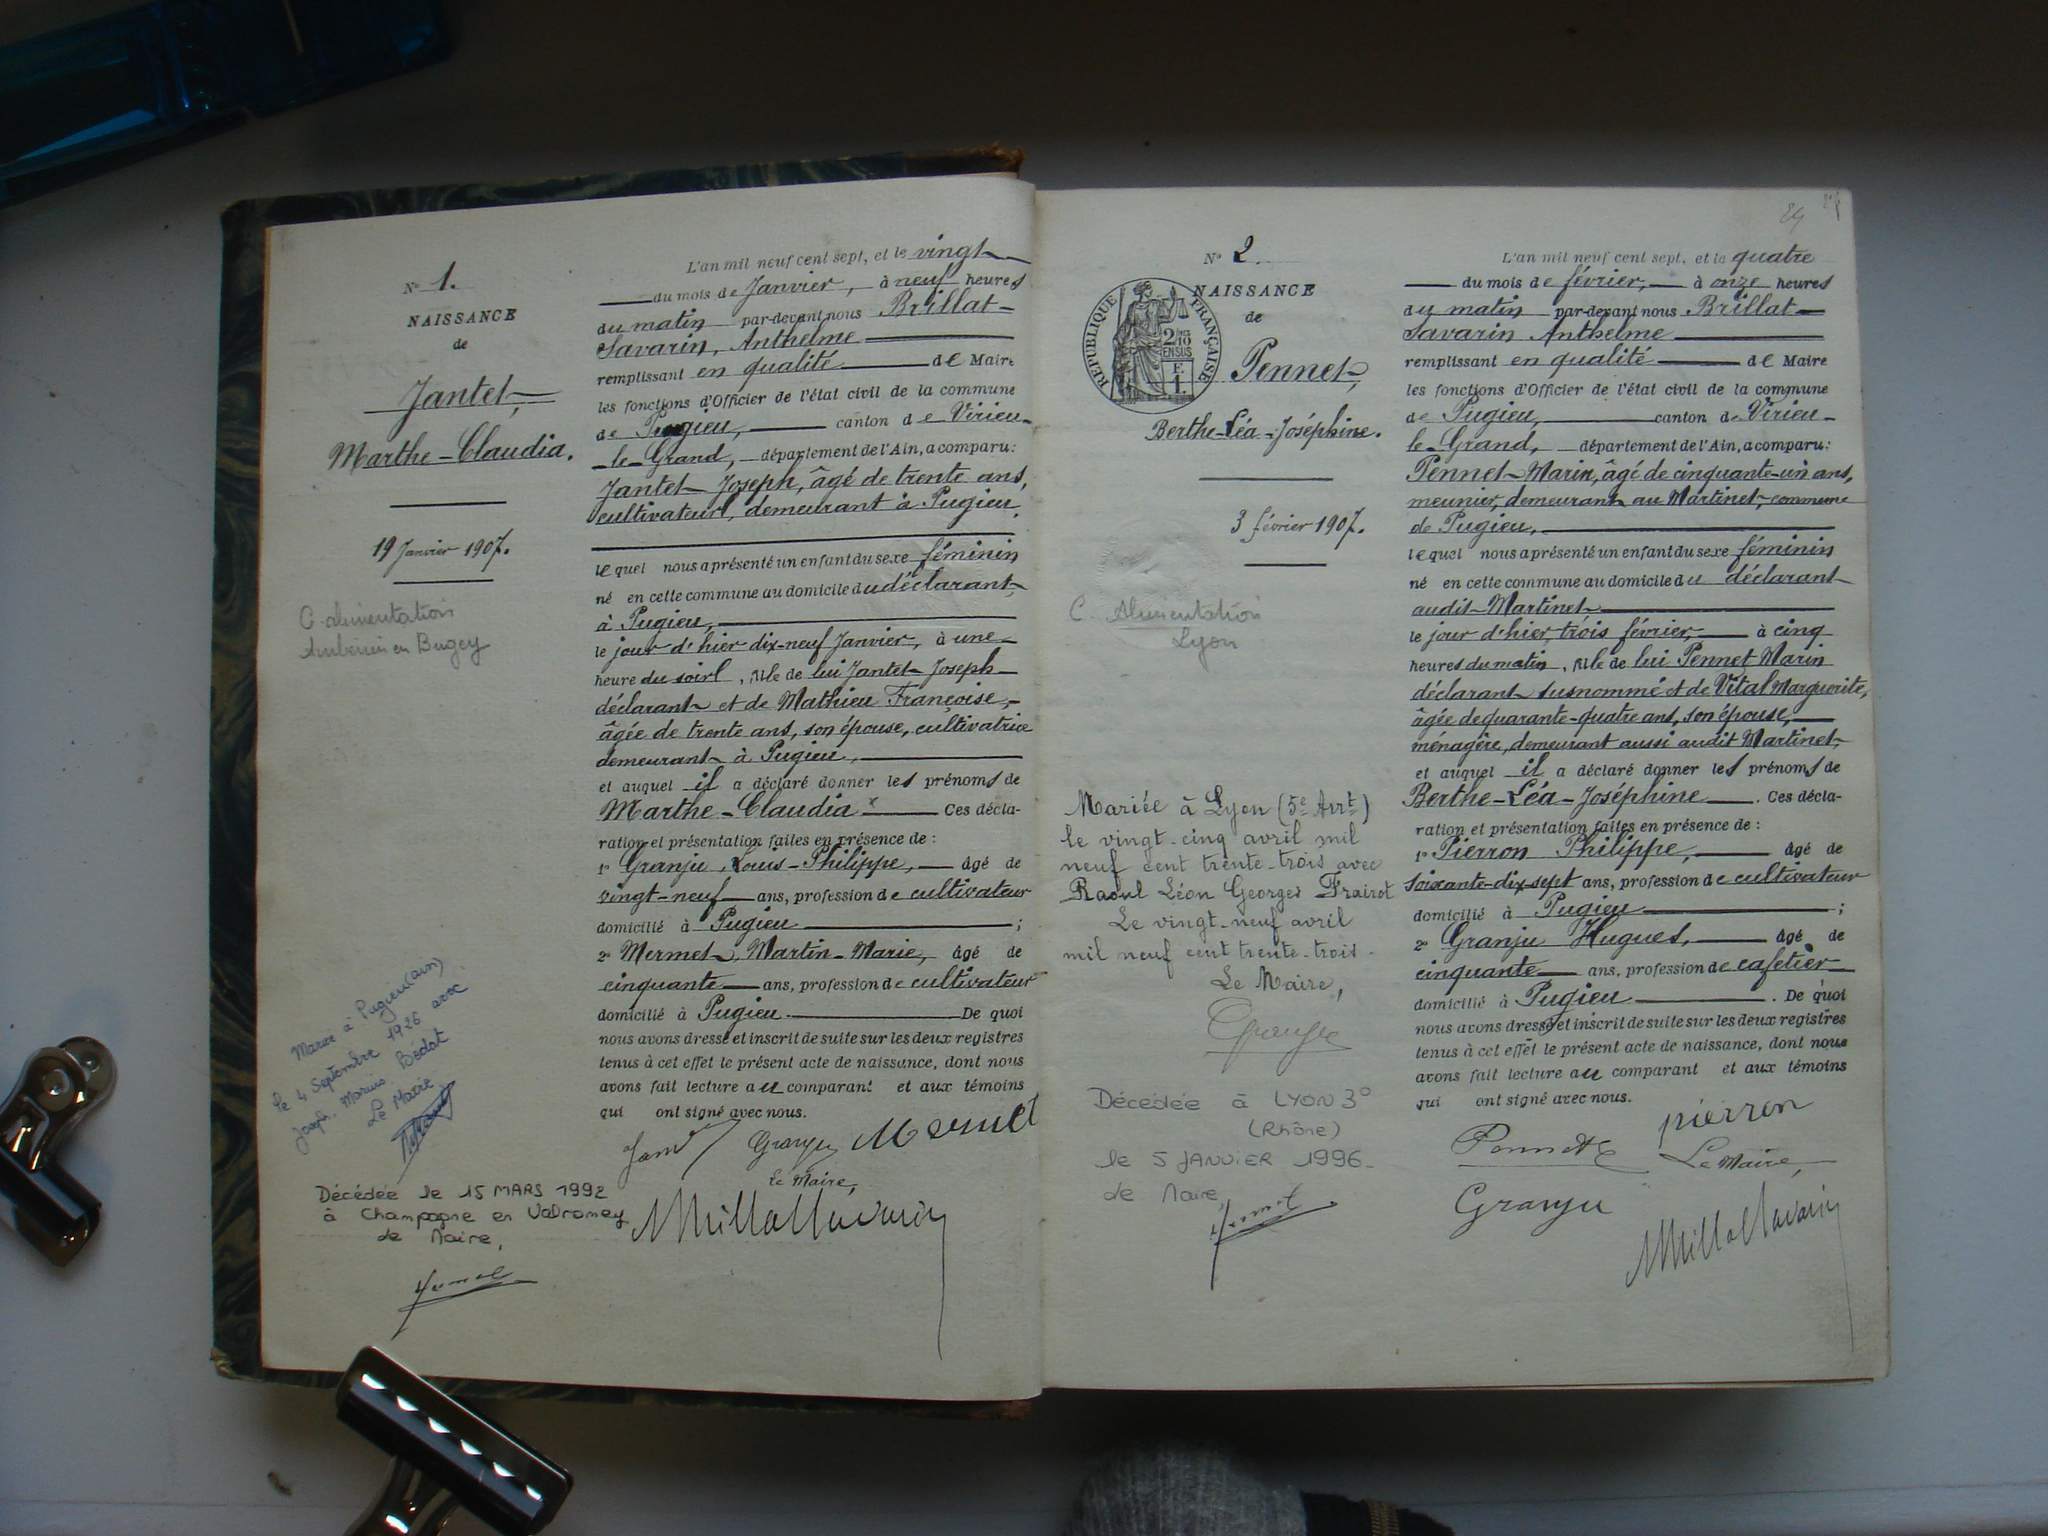 N° 1.
NAISSANCE
de
Jantet,
Marthe-Claudia.
19 Janvier 1907.
C. alimentation
Ambérieu en Bugey
Mariée à Pugieu (ain)
le 4 Septembre 1926 avec
Joseph, Marius Bédat
Le Maire
Décédée le 15 MARS 1992
à Champagne en Valromey
de Maire,
L'an mil neuf cent sept, et le vingt
du mois de Janvier, à neuf heures
du matin par-devant nous Brillat-
Savarin, Anthelme
remplissant en qualité de Maire
les fonctions d'Officier de l'état civil de la commune
de Pugieu, canton de Virieu-
-le-Grand, département de l'Ain, a comparu:
Jantet Joseph, âgé de trente ans,
cultivateur, demeurant à Pugieu,
lequel nous a présenté un enfant du sexe féminin
né en cette commune au domicile du déclarant,
à Pugieu,
le jour d'hier dix-neuf Janvier, à une
heure du soir, fille de lui Jantet Joseph
déclarant et de Mathieu Françoise,
âgée de trente ans, son épouse, cultivatrice
demeurant à Pugieu,
et auquel il a déclaré donner les prénoms de
Marthe-Claudia Ces décla-
ration et présentation faites en présence de :
1° Granju, Louis-Philippe, âgé de
vingt-neuf ans, profession de cultivateur
domicilié à Pugieu ;
2° Mermet, Martin-Marie, âgé de
cinquante ans, profession de cultivateur
domicilié à Pugieu. De quoi
nous avons dressé et inscrit de suite sur les deux registres
tenus à cet effet le présent acte de naissance, dont nous
avons fait lecture au comparant et aux témoins
qui ont signé avec nous.
Granju Mermet
Le Maire,
N° 2.
RÉPUBLIQUE FRANÇAISE
2/10
EN SUS
F.
1.
NAISSANCE
de
Pennet,
Berthe-Léa-Joséphine.
3 février 1907.
C. Alimentation
Lyon
Mariée à Lyon (5e Arrt)
le vingt-cinq avril mil
neuf cent trente-trois avec
Raoul Léon Georges Frairot
Le vingt-neuf avril
mil neuf cent trente-trois.
Le Maire,
Décédée à LYON 3°
(Rhône)
le 5 JANVIER 1996.
de Maire,
24
L'an mil neuf cent sept, et le quatre
du mois de février, à onze heures
du matin par-devant nous Brillat-
Savarin Anthelme
remplissant en qualité de Maire
les fonctions d'Officier de l'état civil de la commune
de Pugieu, canton de Virieu-
le-Grand, département de l'Ain, a comparu:
Pennet Marin, âgé de cinquante-un ans,
meunier, demeurant au Martinet, commune
de Pugieu,
lequel nous a présenté un enfant du sexe féminin
né en cette commune au domicile du déclarant
audit Martinet
le jour d'hier, trois février, à cinq
heures du matin, fille de lui Pennet Marin
déclarant susnommé et de Vital Marguerite,
âgée de quarante-quatre ans, son épouse,
ménagère, demeurant aussi audit Martinet,
et auquel il a déclaré donner les prénoms de
Berthe-Léa-Joséphine. Ces décla-
ration et présentation faites en présence de :
1° Pierron Philippe, âgé de
soixante-dix-sept ans, profession de cultivateur
domicilié à Pugieu ;
2° Granju Hugues, âgé de
cinquante ans, profession de cafetier
domicilié à Pugieu. De quoi
nous avons dressé et inscrit de suite sur les deux registres
tenus à cet effet le présent acte de naissance, dont nous
avons fait lecture au comparant et aux témoins
qui ont signé avec nous.
Pennet pierron
Le Maire,
Granju